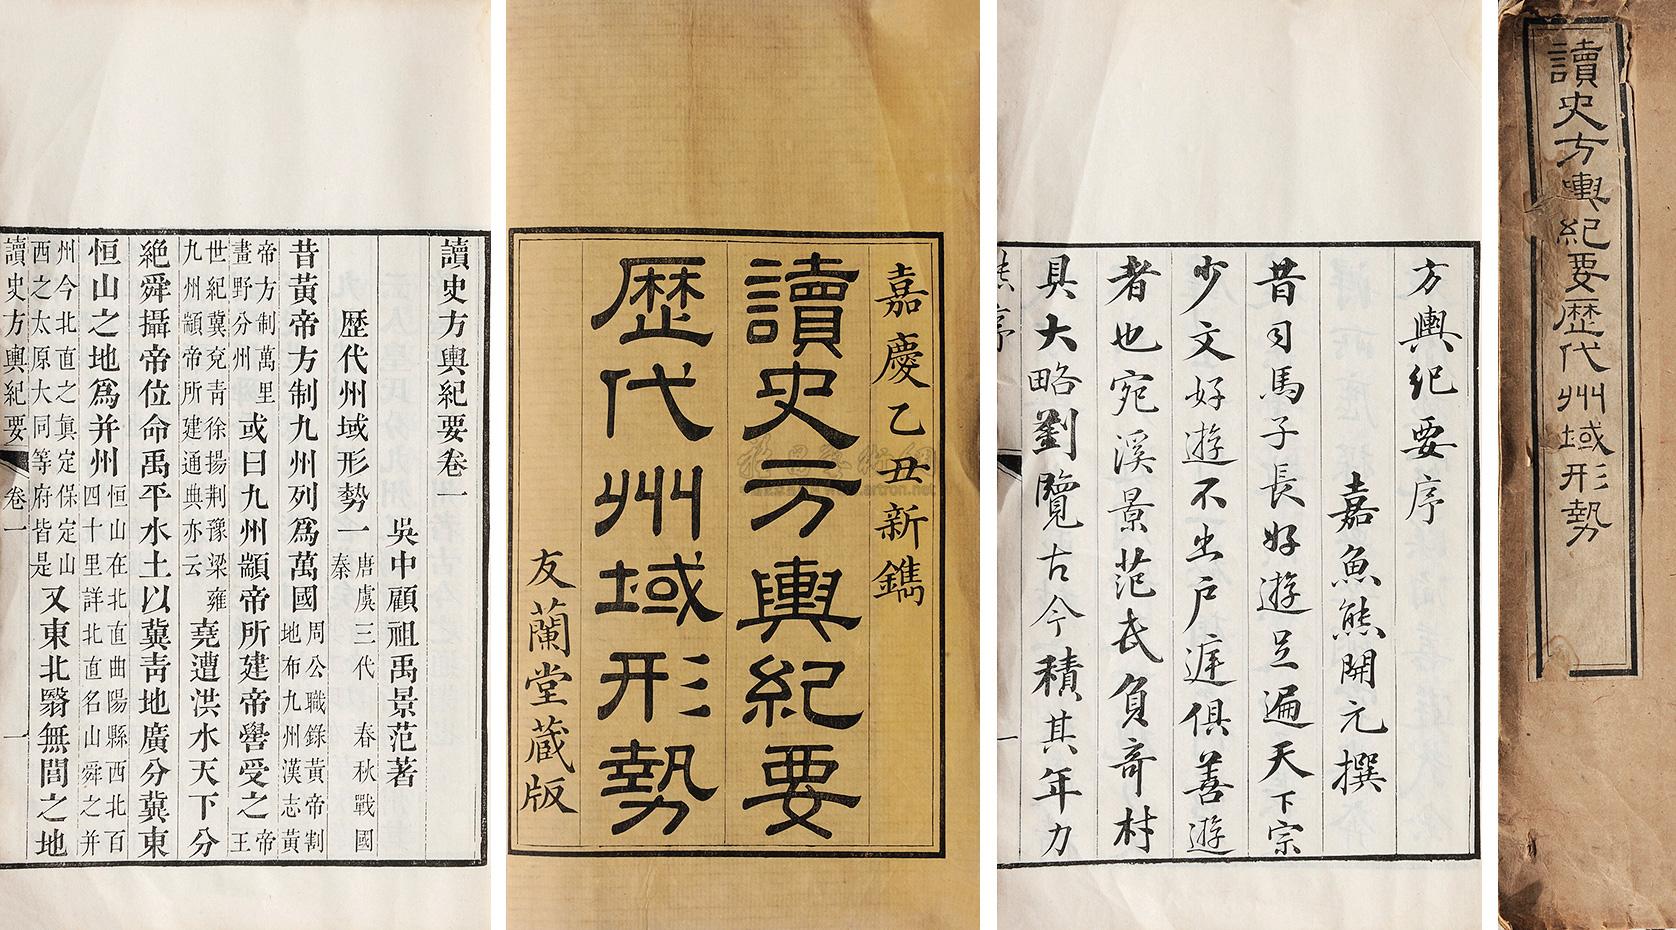 讀史方輿紀要卷一
吳中顧祖禹景范著
歷代州域形勢一唐虞三代 春秋戰國秦
昔黃帝方制九州列爲萬國周公職錄黃帝割地布九州漢志黃
帝方制萬里畫野分州或曰九州顓帝所建帝嚳受之帝王
世紀冀兗靑徐揚荆豫梁雍九州顓帝所建通典亦云堯遭洪水天下分
絶舜攝帝位命禹平水土以冀靑地廣分冀東
恒山之地爲并州恒山在北直曲陽縣西北百四十里詳北直名山舜之并
州今北直之眞定保定山西之太原大同等府皆是又東北醫無閭之地
讀史方輿紀要 卷一 一
嘉慶乙丑新鐫
讀史方輿紀要
歷代州域形勢
友蘭堂藏版
方輿紀要序
嘉魚熊開元撰
昔司馬子長好遊足遍天下宗
少文好遊不出戶庭俱善遊
者也宛溪景范氏負奇材
具大略劉覽古今積其年力
熊序 一
讀史方輿紀要歷代州域形勢